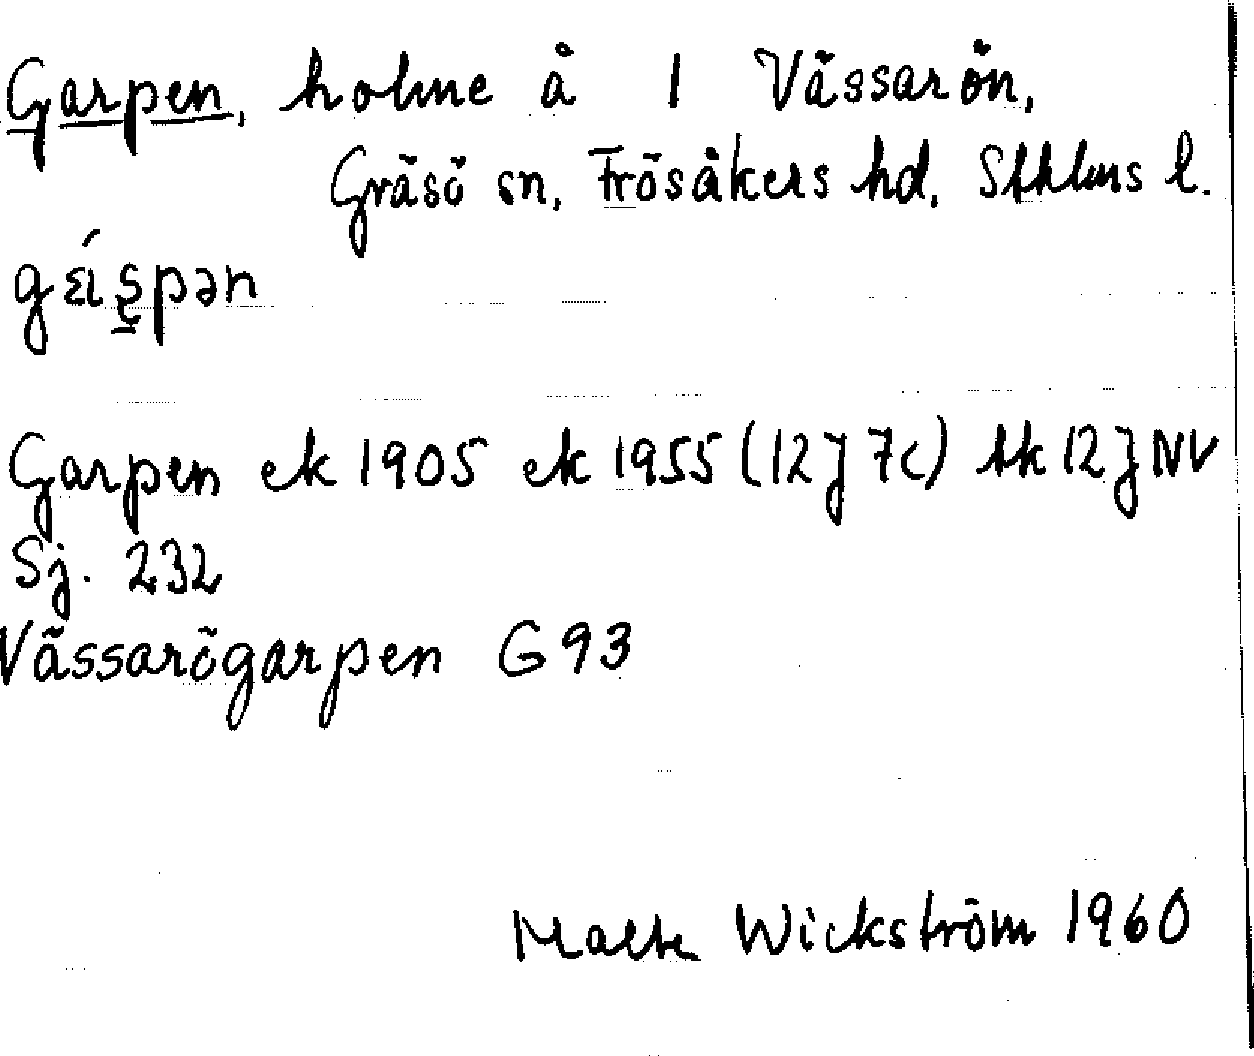 Garpen, holme å 1 Vässarön,
Gräsö sn, Frösåkers hd, Sthlms l.
Garpen ek 1905 ek 1955 (12J 7c) tk 12J NV
Sj. 232
Vässarögarpen G 93
Malte Wickström 1960